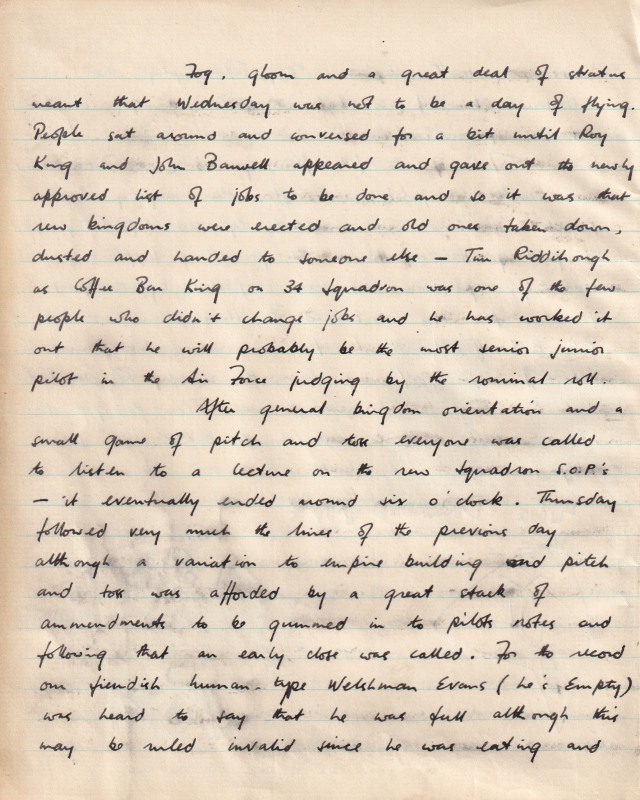 Fog, gloom and a great deal of stratus
meant that Wednesday was not to be a day of flying.
People sat around and conversed for a bit until Roy
King and John Banwell appeared and gave out the newly
approved list of jobs to be done and so it was that
new kingdoms were erected and old ones taken down,
dusted and handed to someone else – Tim Riddihough
as Coffee Bar King on 34 Squadron was one of the few
people who didn't change jobs and he has worked it
out that he will probably be the most senior junior
pilot in the Air Force judging by the nominal roll.
After general kingdom orientation and a
small game of pitch and toss everyone was called
to listen to a lecture on the new Squadron S.O.P.'s
– it eventually ended around six o'clock. Thursday
followed very much the lines of the previous day
although a variation to empire building and pitch
and toss was afforded by a great stack of
ammendments to be gummed in to pilots notes and
following that an early close was called. For the record
our fiendish human-type Welshman Evans (he's Empty)
was heard to say that he was full although this
may be ruled invalid since he was eating and